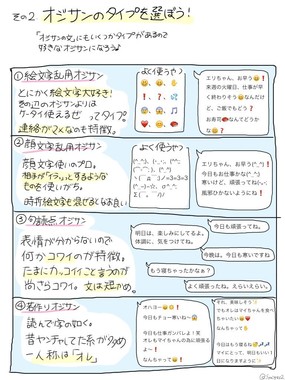 その2. オジサンのタイプを選ぼう！
「オジサンの文」にもいくつかタイプがあるので
好きなオジサンになろう♪
①絵文字乱用オジサン
とにかく絵文字大好き！
その辺のオジサンよりは
ケータイ使えるぜ ってタイプ。
連絡がマメなのも特徴。
よく使うやつ
エリちゃん、お早う😄❗
来週の火曜日、仕事が早
く終わりそう😄なんだけ
ど、ご飯でもどう❓
お寿司🍣なんてどうか
な😄❗
②顔文字乱用オジサン
顔文字使いのプロ。
相手が「イラッ」とするような
ものを使いがち。
時折絵文字を混ぜるなお良い
よく使うやつ
エリちゃん、お早う(^_^)
今日もお仕事かな(^_^)
③句読点オジサン
表情が分からないので
何かコワイのが特徴。
たまにカッコイイこと言うのが
尚さらコワイ。文は短かめ。
明日は、楽しみにしてるよ。
体調に、気をつけてね。
今日も頑張ってね。
今晩は。今日も寒いですね
もう寝ちゃったかなぁ？
よく頑張ったね。えらいえらい。
④若作りオジサン
読んで字の如く。
昔ヤンチャしてた系が多め
一人称は「オレ」
オハヨー😄❗
今日もチョー寒いね〜😱
今日も仕事ガンバレよ！笑
オレもマイちゃんの為に頑張る
よー！
なんちゃって😄❗
それ、美味しそう
でもオレはマイちゃんを食
べちゃいたい😄
なんちゃって
今日もお疲れ様
マイにとって、明日もいい1
日になりますように